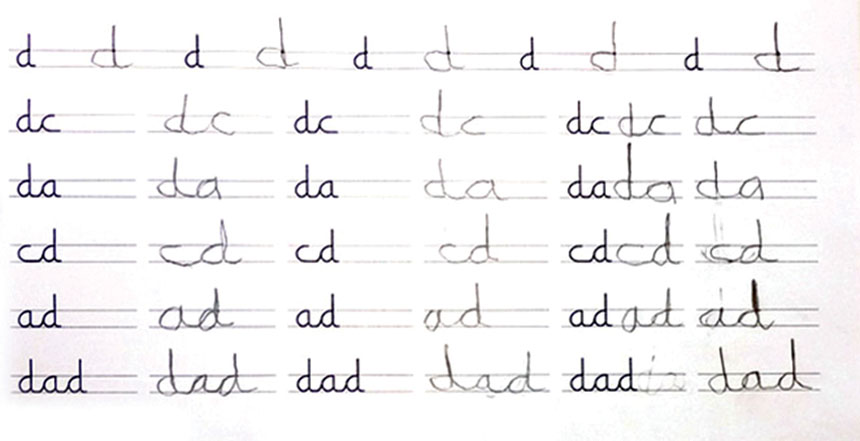 d d d d d d d d d d
dc dc dc dc dc dc dc
da da da da da da da
cd cd cd cd cd cd cd
ad ad ad ad ad ad ad
dad dad dad dad dad dad